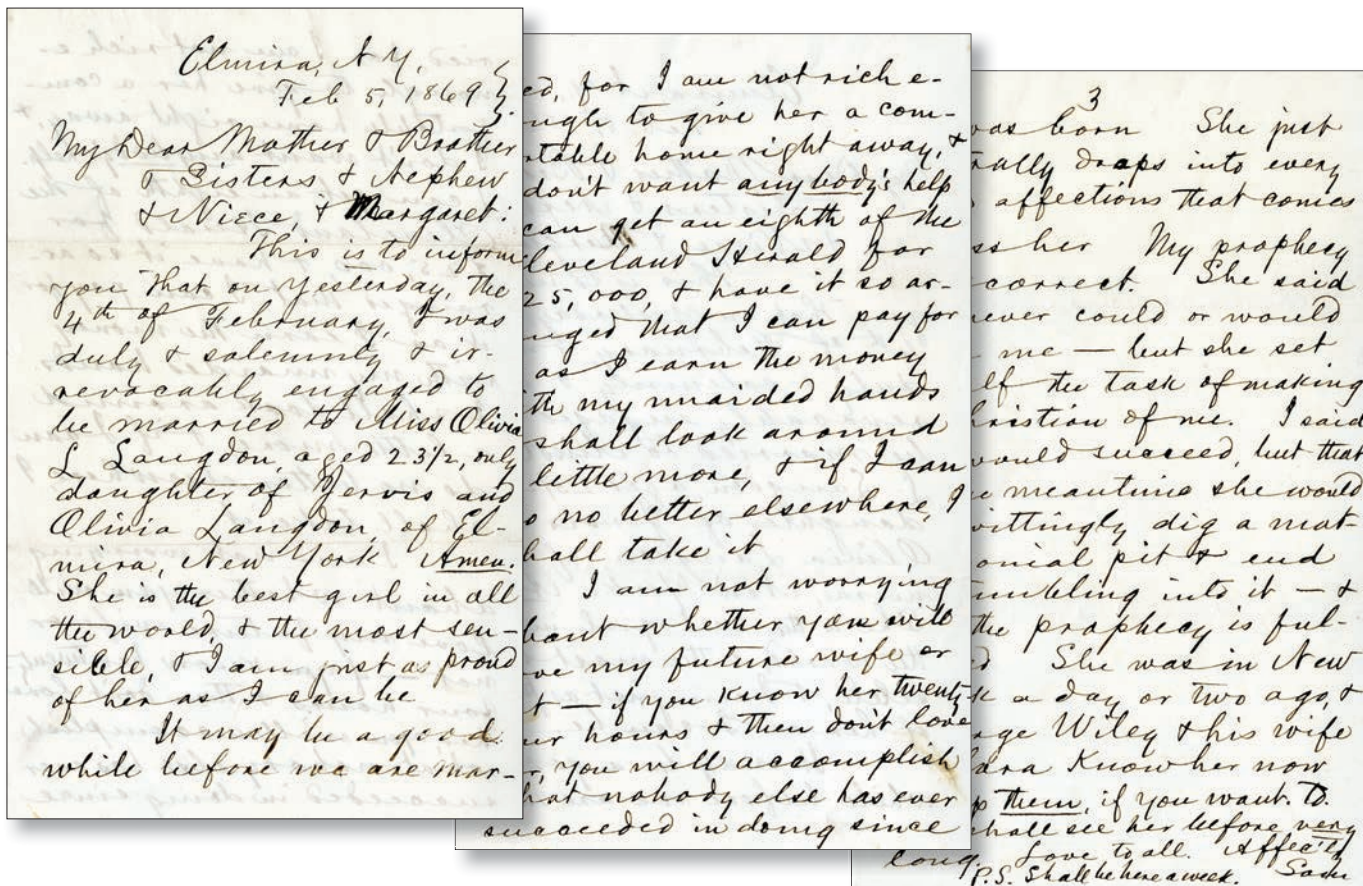 Elmira, N Y,
Feb 5, 1869
My Dear Mother & Brother
& Sisters & Nephew
& Niece, & Margaret:
This is to inform
you that on yesterday, the
4th of February, I was
duly & solemnly & ir-
revocably engaged to
be married to Miss Olivia
L Langdon, aged 23 1/2, only
daughter of Jervis and
Olivia Langdon, of El-
mira, New York Amen.
She is the best girl in all
the world, & the most sen-
sible, & I am just as proud
of her as I can be
It may be a good
while before we are mar-
ed, for I am not rich e-
ugh to give her a com-
rtable home right away, &
don't want anybody's help
can get an eighth of the
leveland Herald for
25,000, & have it so ar-
nged that I can pay for
as I earn the money
th my unaided hands
shall look around
little more, & if I can
o no better elsewhere, I
hall take it
I am not worrying
bout whether you will
ve my future wife or
t — if you know her twenty-
ur hours & then don't love
r, you will accomplish
hat nobody else has ever
succeeded in doing since
3
was born She just
rally drops into every
affections that comes
ss her My prophecy
correct. She said
never could or would
me — but she set
lf the task of making
hristian of me. I said
would succeed, but that
e meantime she would
wittingly dig a mat-
onial pit & end
umbling into it — &
the prophecy is ful-
d She was in New
k a day or two ago, &
rge Wiley & his wife
lara Know her now
p them, if you want to.
hall see her before very
long. Love to all. Affec'ly
Sam
P.S. Shall be here a week.